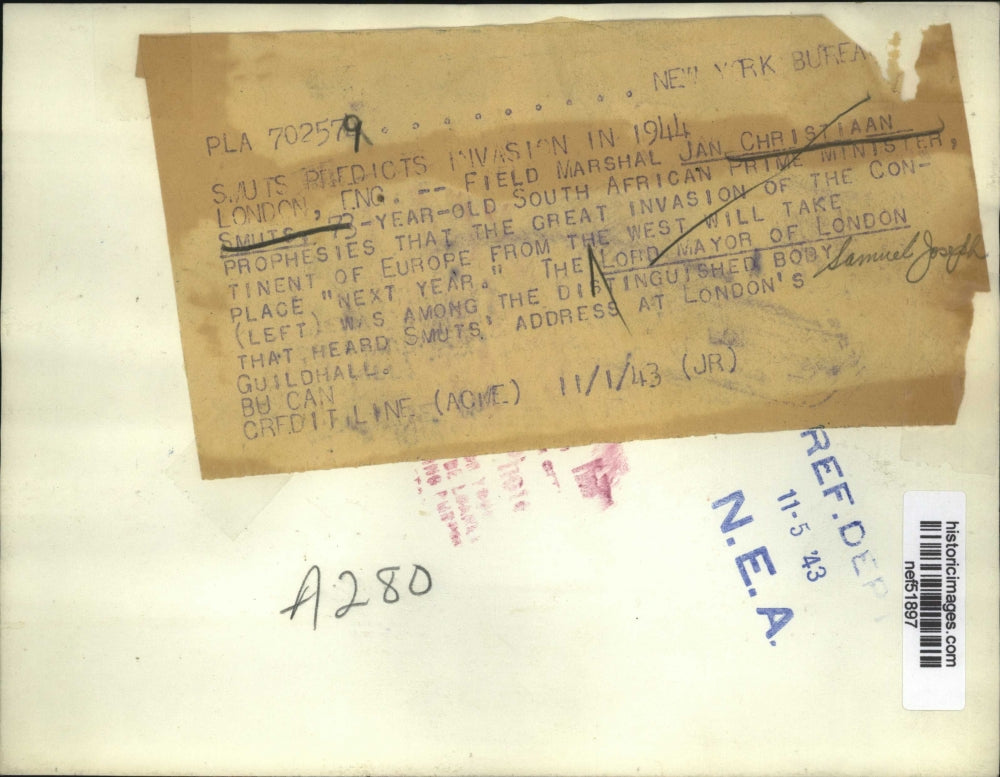 NEW YORK BUREA
PLA 702579 . . . . . . . . . .
SMUTS PREDICTS INVASION IN 1944
LONDON, ENG. -- FIELD MARSHAL JAN CHRISTIAAN
SMUTS, 73-YEAR-OLD SOUTH AFRICAN PRIME MINISTER,
PROPHESIES THAT THE GREAT INVASION OF THE CON-
TINENT OF EUROPE FROM THE WEST WILL TAKE
PLACE "NEXT YEAR." THE LORD MAYOR OF LONDON
(LEFT) WAS AMONG THE DISTINGUISHED BODY Samuel Joseph
THAT HEARD SMUTS' ADDRESS AT LONDON'S
GUILDHALL.
BU CAN
CREDIT LINE (ACME) 11/1/43 (JR)
REF. DEP
11-5 '43
N.E.A.
A280
historicimages.com
nef51897